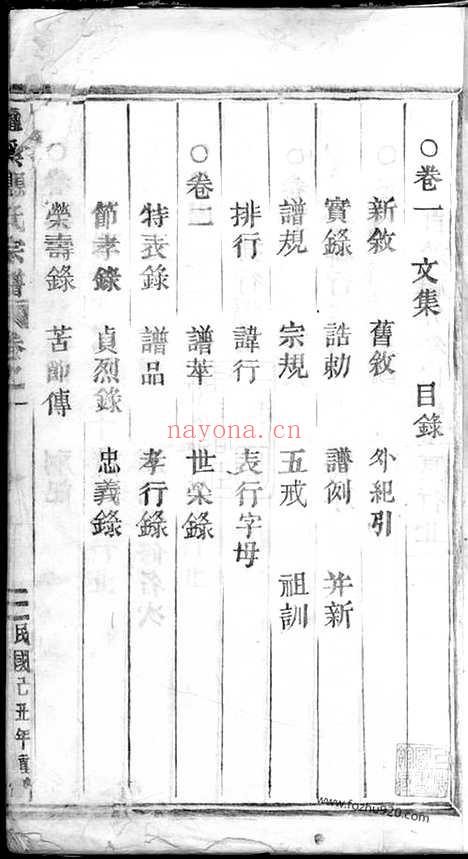 ○卷一 文集 目錄
新敘 舊敘 外紀引
實錄 誥勅 譜例 并新
譜規 宗規 五戒 祖訓
排行 諱行 表行字母
○卷二 譜華 世榮錄
特表錄 譜品 孝行錄
節孝錄 貞烈錄 忠義錄
榮壽錄 苦節傳
氏宗譜
民國己丑年重
nayona.cn
www.fozhu920.com